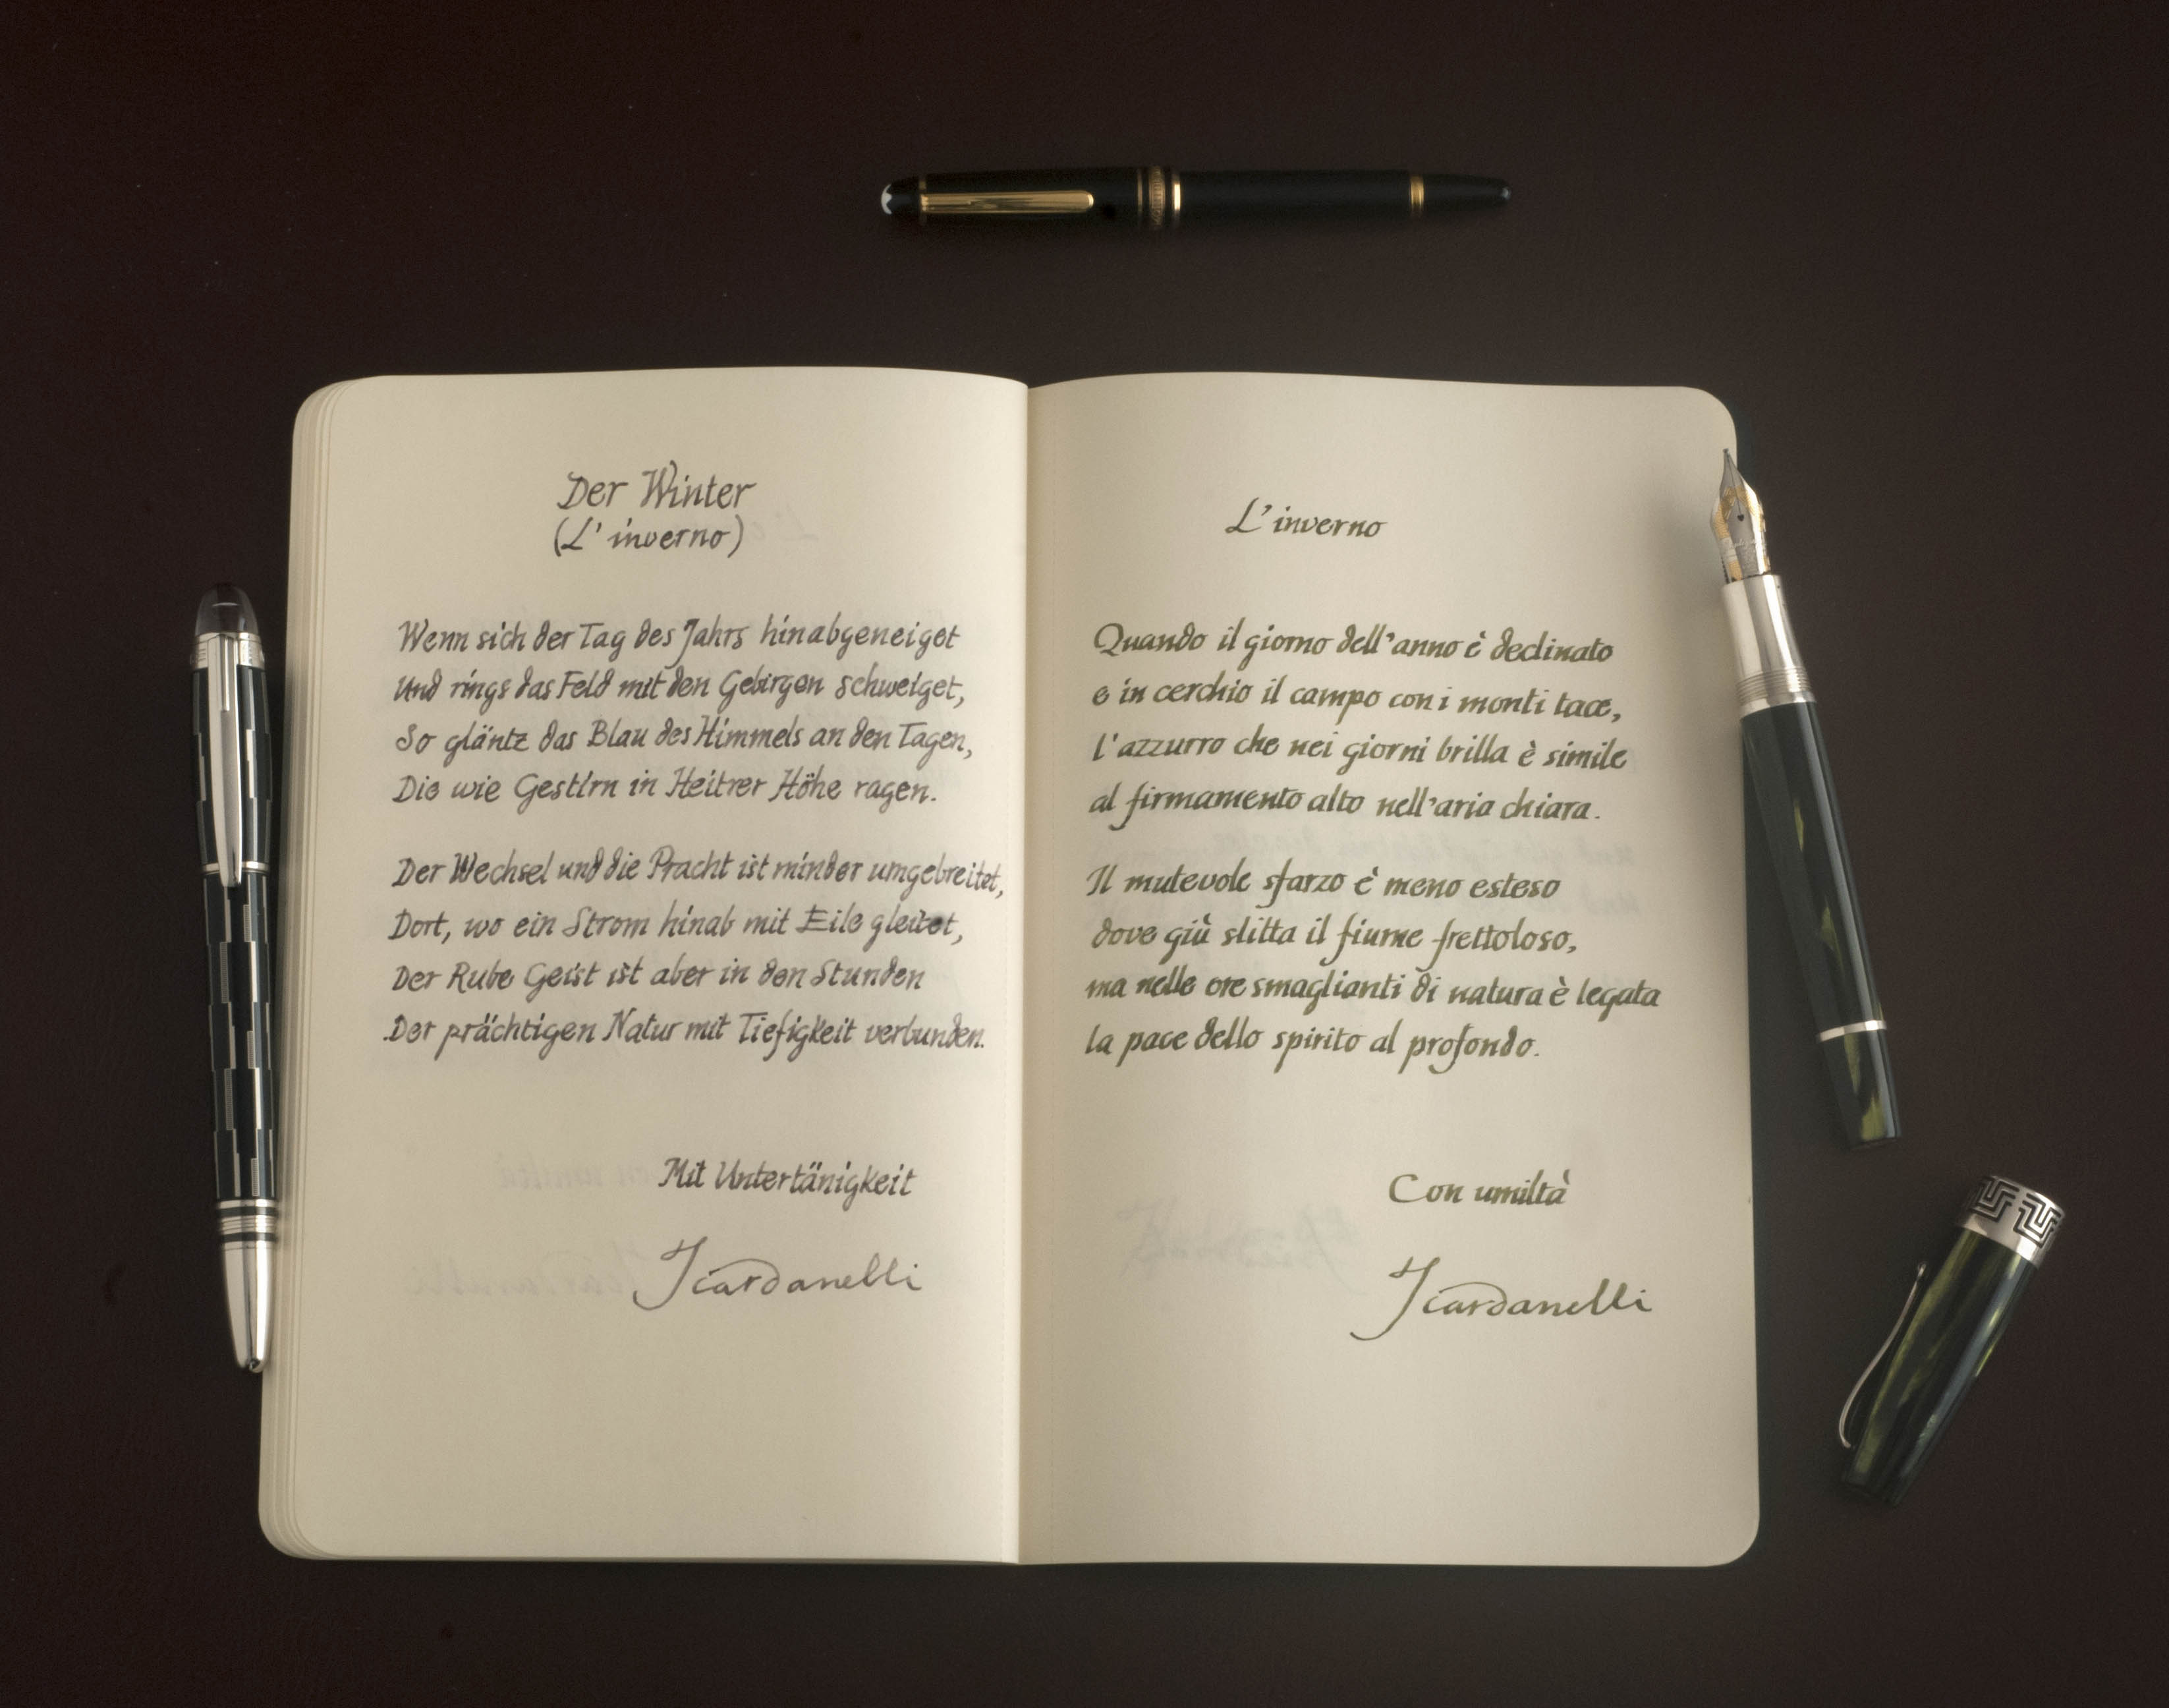 Der Winter
(L'inverno)
Wenn sich der Tag des Jahrs hinabgeneiget
Und rings das Feld mit den Gebirgen schweiget,
So gläntz das Blau des Himmels an den Tagen,
Die wie Gestirn in Heitrer Höhe ragen.
Der Wechsel und die Pracht ist minder umgebreitet,
Dort, wo ein Strom hinab mit Eile gleitet,
Der Ruhe Geist ist aber in den Stunden
Der prächtigen Natur mit Tiefigkeit verbunden.
Mit Untertänigkeit
Scardanelli
L'inverno
Quando il giorno dell'anno è declinato
e in cerchio il campo con i monti tace,
l'azzurro che nei giorni brilla è simile
al firmamento alto nell'aria chiara.
Il mutevole sfarzo è meno esteso
dove giù slitta il fiume frettoloso,
ma nelle ore smaglianti di natura è legata
la pace dello spirito al profondo.
Con umiltà
Scardanelli